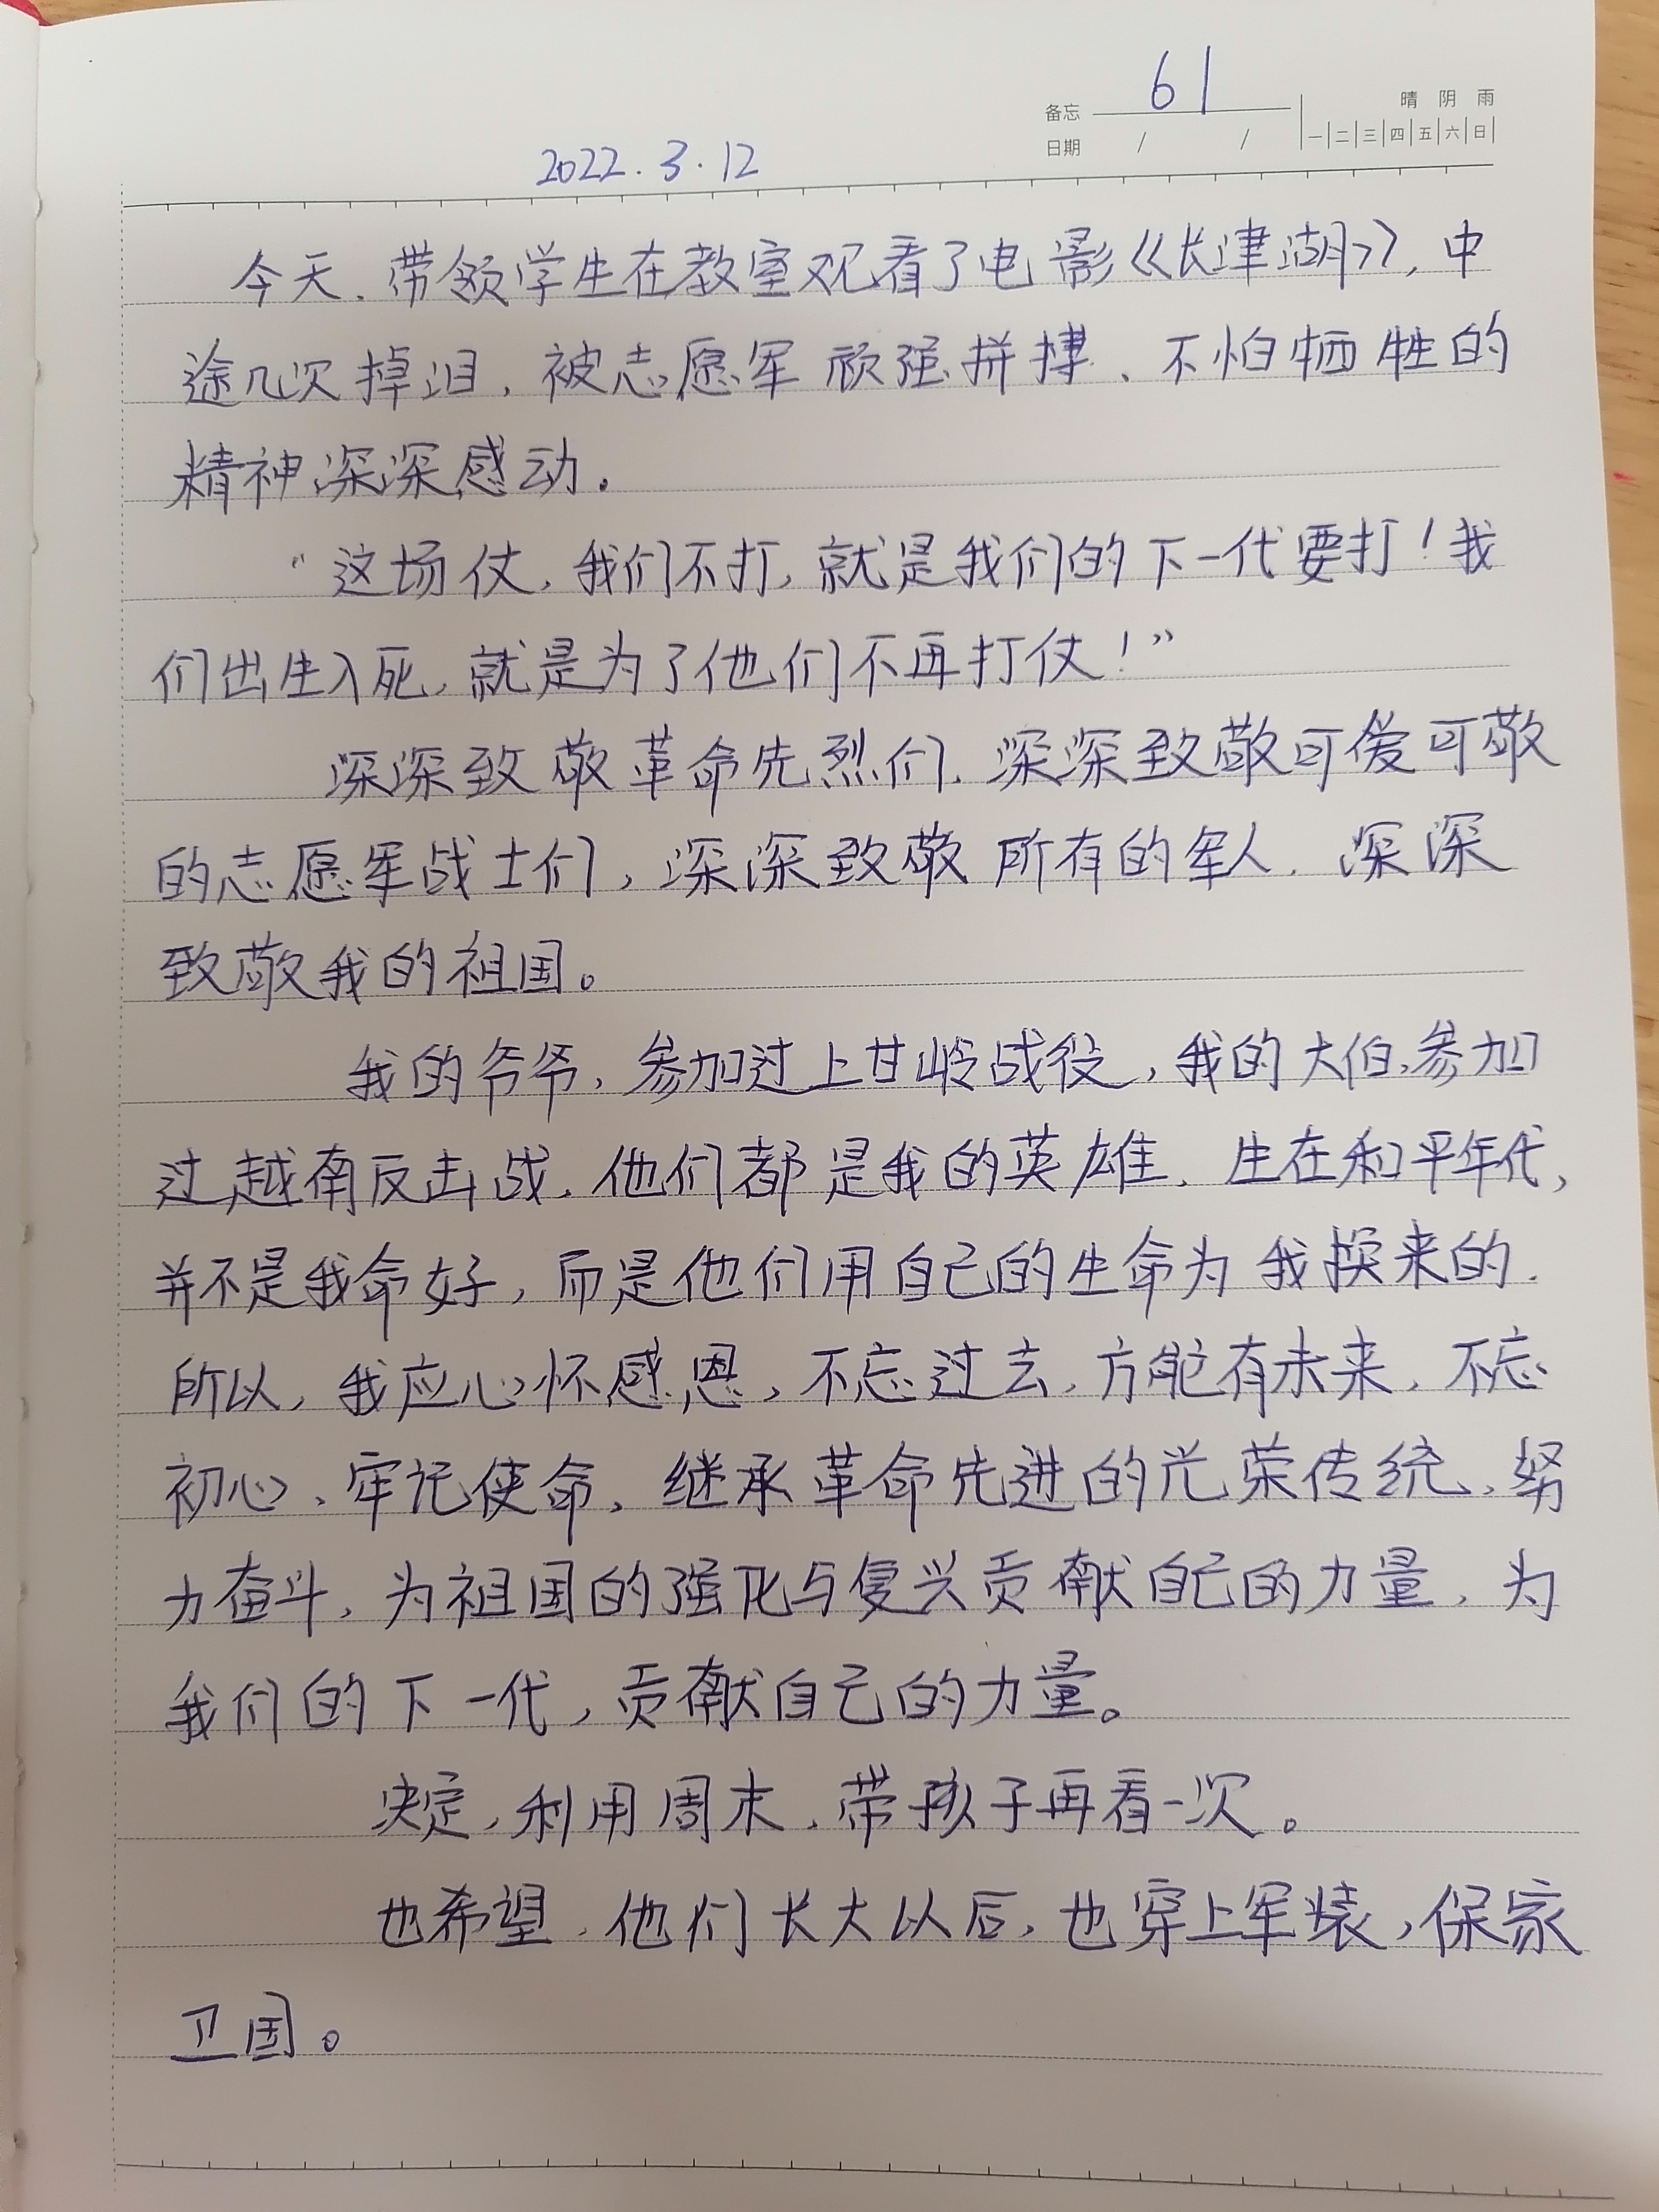 61
备忘
晴 阴 雨
日期 / / 一 二 三 四 五 六 日
2022.3.12
今天,带领学生在教室观看了电影《长津湖》,中
途几次掉泪,被志愿军顽强拼搏、不怕牺牲的
精神深深感动。
“这场仗,我们不打,就是我们的下一代要打!我
们出生入死,就是为了他们不再打仗!”
深深致敬革命先烈们,深深致敬可爱可敬
的志愿军战士们,深深致敬所有的军人,深深
致敬我的祖国。
我的爷爷,参加过上甘岭战役,我的大伯,参加
过越南反击战,他们都是我的英雄,生在和平年代,
并不是我命好,而是他们用自己的生命为我换来的.
所以,我应心怀感恩,不忘过去,方能有未来,不忘
初心、牢记使命,继承革命先进的光荣传统,努
力奋斗,为祖国的强化与复兴贡献自己的力量,为
我们的下一代,贡献自己的力量。
决定,利用周末,带孩子再看一次。
也希望,他们长大以后,也穿上军装,保家
卫国。